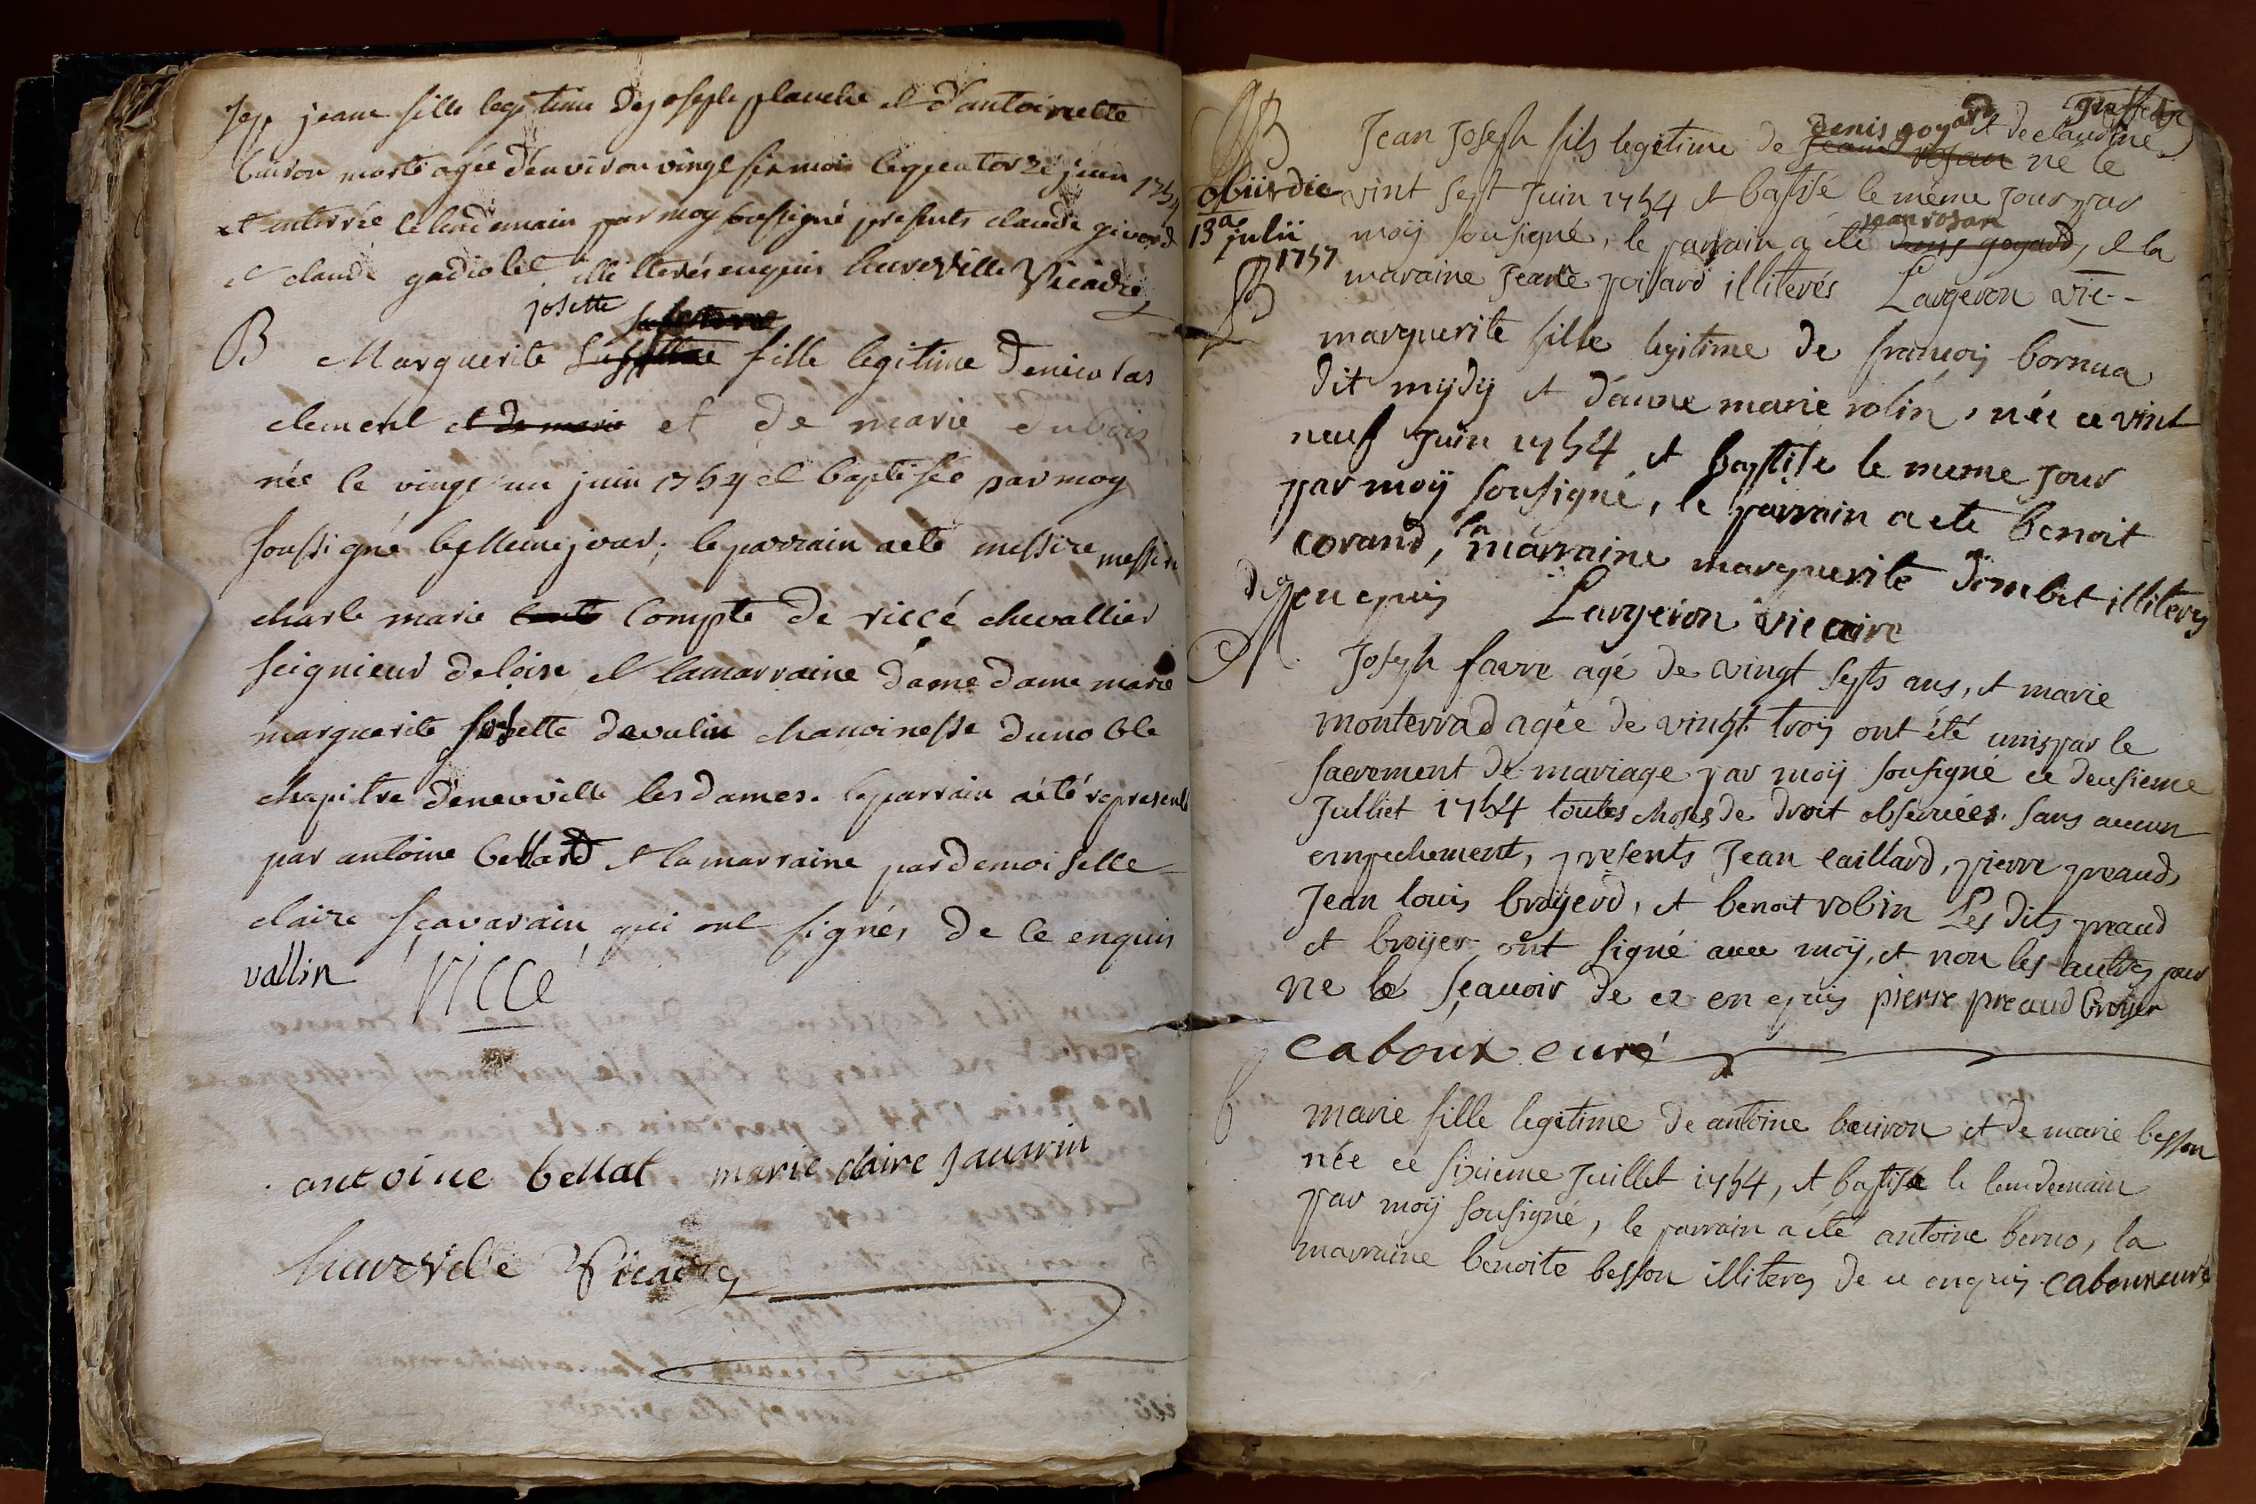 Sep jeanne fille legitime de joseph planche et d'antoinette
buiron morte agée d'environ vingt six mois le quatorze juin 1754
et enterrée le lendemain par moy soussigné presents claude givord
et claude gadiolet illiterés enquis hureville Vicaire
josette
B Marguerite fille legitime de nicolas
clement et de marie et de marie dubois
née le vingt un juin 1754 et baptisée par moy
soussigné le meme jour; le parrain a eté messire messire
charle marie comte compte de riccé chevallier
seigneur de loise et la marraine dame dame marie
marguerite josette de valin chanoinesse du noble
chapitre de neuville les dames. le parrain a été represente
par antoine bellard et la marraine par demoiselle
claire scavarain qui ont signés de ce enquis
vallin riccé
antoine bellat marie claire sauarin
hureville Vicaire
B
obiit die
13a julii
1757
denis goyard graffe
Jean Joseph fils legitime de Jean rosan et de claudine né le
vint sept Juin 1754 et batisé le même jour par
jean rosan
moÿ sousigné, le parrain a été denis goyard, et la
maraine Jeane poisard illiterés Largeron vic-
B
marguerite fille legitime de françois bornua
dit mydy et d'anne marie rolin, née ce vint
neuf Juin 1754 et baptisé le meme jour
par moÿ sousigné, le parrain a ete benoit
corand, la marraine marguerite dombet illiterés
de ce enquis Largeron vicaire
M
Joseph favre agé de vingt septs ans, et marie
monterrad agée de vingt trois ont été unis par le
sacrement de mariage par moÿ sousigné ce deusieme
Julliet 1754 toutes choses de droit observées sans aucun
empechement, presents Jean caillard, pierre preaud,
Jean louis broÿerd, et benoit robin Les dits preaud
et broÿer ont signé avec moÿ, et non les autres pour
ne le sçauoir de ce enquis pierre preaud broyer
caboux curé
b
marie fille legitime de antoine buiron et de marie besson
née ce sixieme Juillet 1754, et batisée le lendemain
par moÿ sousigné, le parrain a été antoine berno, la
marraine benoite besson illiteres de ce enquis caboux curé